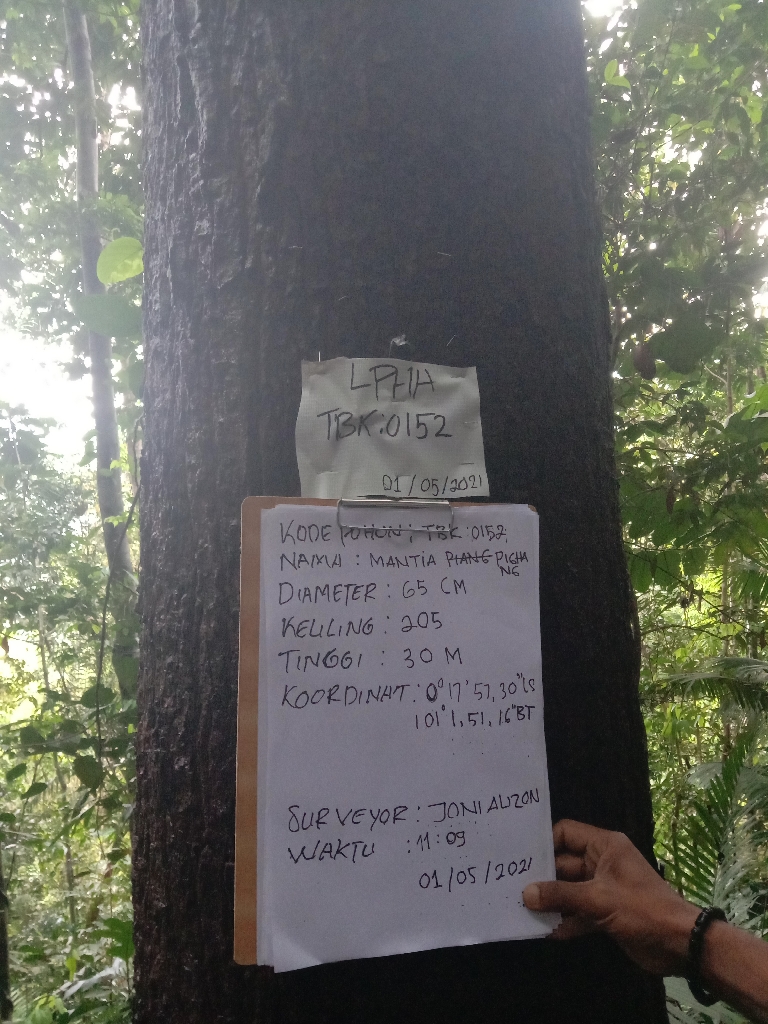 LPHA
TBK:0152
01/05/2021
KODE POHON : TBK :0152
NAMA : MANTIA PIANG PIGHA
NG
DIAMETER : 65 CM
KELILING : 205
TINGGI : 30 M
KOORDINAT : 0° 17' 57, 30" LS
101° 1, 51, 16" BT
SURVEYOR : JONI AUZON
WAKTU : 11 : 09
01/05/2021